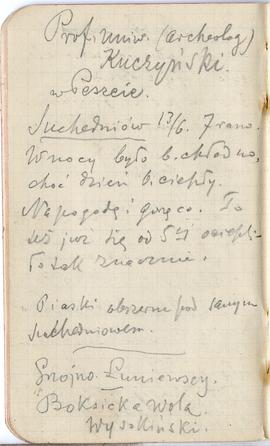 Prof. Uniw. (archeolog)
Kuczyński.
w Peszcie.
Suchedniów 13/6. 7 rano.
W nocy było b. chłodno,
choć dzień b. ciepły.
Na pogodę i gorąco. To
też już się od 5tj ociepli-
ło tak znacznie.
Piaski obszerne pod samym
Suchedniowem.
Gnojno. Łuniewscy.
Boksicka Wola
Wysokiński.